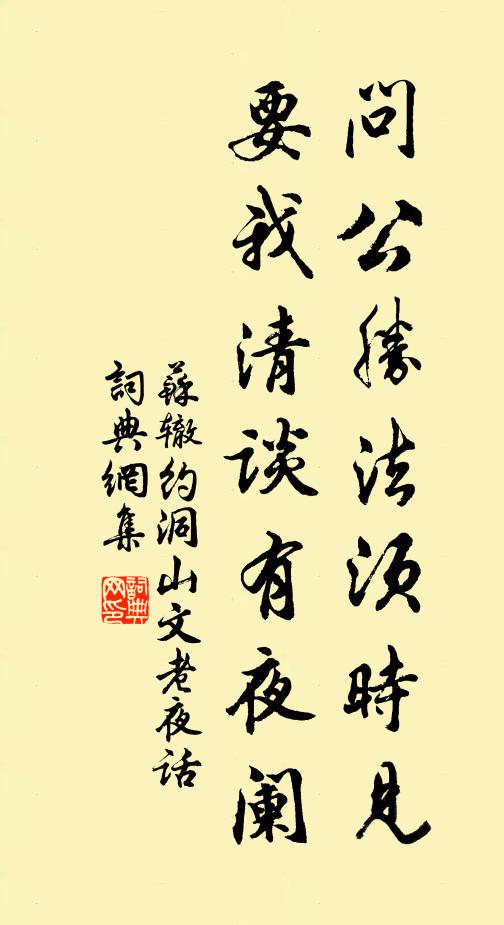 問公勝法須時見
要我清談有夜阑
蘇辙約洞山文老夜話
詞典網集
詞典網印